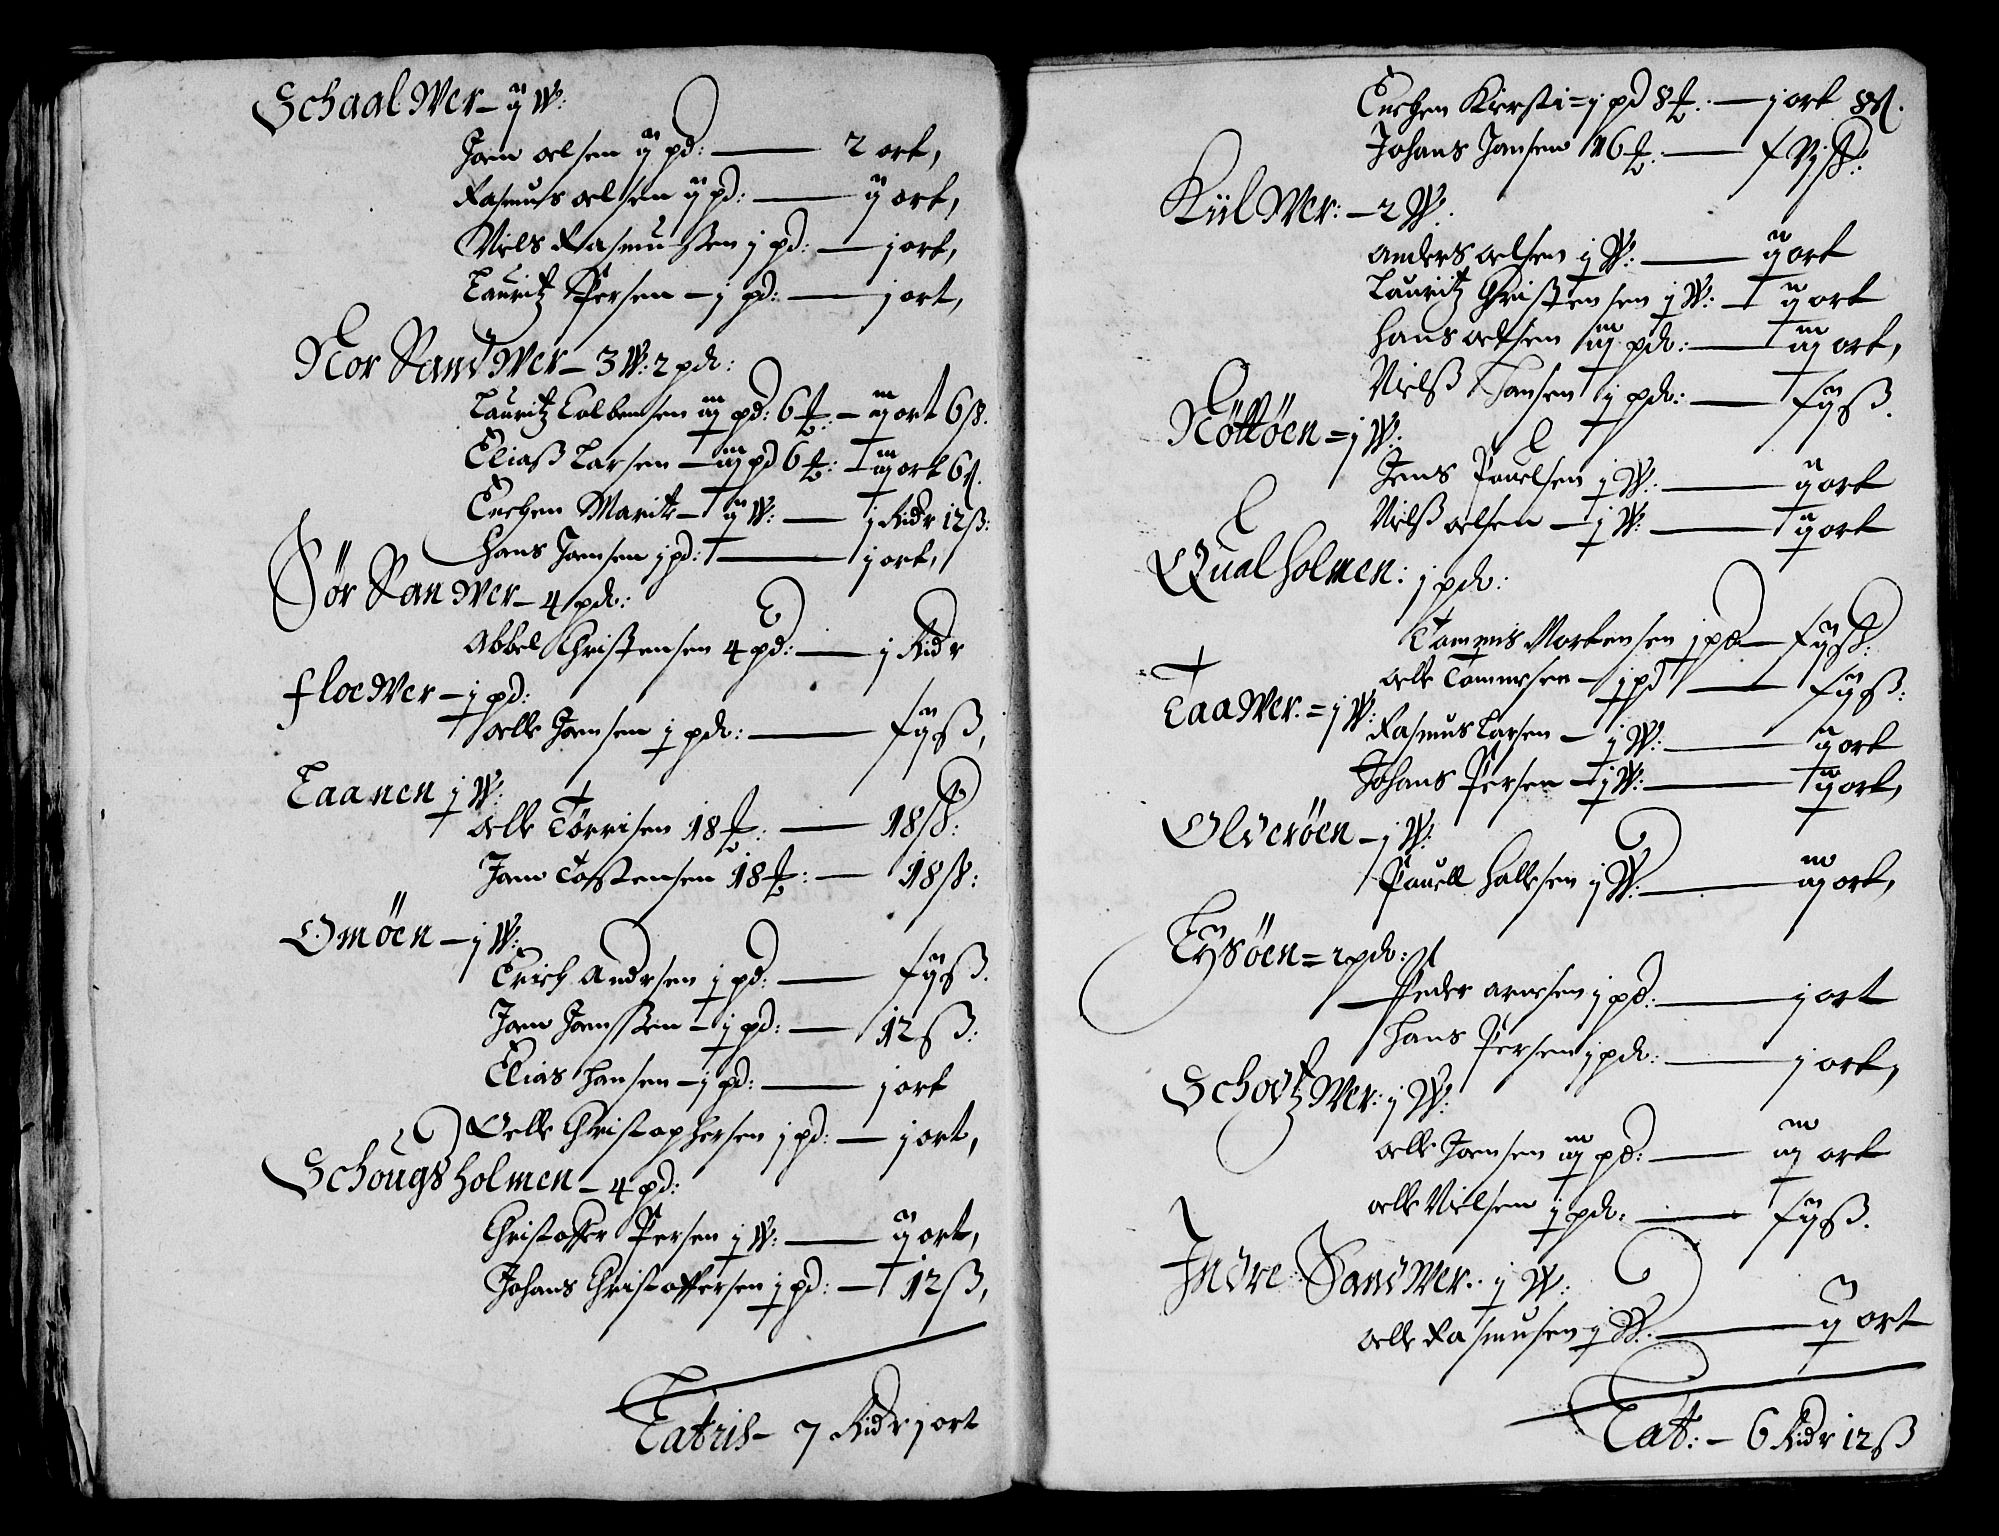 Schaal Wer – ij W:
Jenn oelsen ij pd: — 2 ort,
Rasmus oelsen ij pd: — ij ort,
Niels Rasmussen j pd: — j ort,
Lauritz Persen – j pd: — j ort,
Nor Sand Wer – 3 W: 2 pdr:
Lauritz Colbensen iij pd: 6 ℔: – iij ort 6 ß.
Eliaß Larsen – iij pd 6 ℔: – iij ort 6 ß.
Enchen Maritt – ij W: — j Ridr 12 ß:
Hans Jamsen j pd: — j ort,
Sör Sand Wer – 4 pdr:
Abbel Christensen 4 pd: — j Ridr
Floe Wer – j pd:
oelle Jamsen j pdr: — xij ß,
Taanen j W:
oelle Törrisen 18 ℔: — 18 ß:
Jenn Tostensen 18 ℔: — 18 ß:
Omöen – j W:
Erich Andrsen j pd: — xij ß.
Jenn Jenssen – j pd: — 12 ß:
Elias Hansen – j pd: — j ort
Oelle Christophersen j pd: — j ort,
Schougs holmen – 4 pd:
Christoffer Persen j W: — ij ort,
Johans Christoffersen j pd: — 12 ß,
Latris – 7 Ridr j ort
Enchen Kiersti = j pd 8 ℔: — j ort 8 ß.
Johans Jansen 16 ℔: — xvj ß:
Kiil Wer: – 2 W.
Anders oelsen j W: — ij ort
Lauritz Christensen j W: – ij ort
Hans oelsen iij pdr: — iij ort,
Nielß Hansen j pdr: — xij ß.
Nöttöen = j W:
Jens Pouelsen j W: — ij ort
Nielß oelsen – j W: — ij ort
Qualholmen: j pdr:
Tommis Mortensen j pd — xij ß:
oelle Tommesen – j pd — xij ß:
Taa Wer. = j W:
Rasmus Larsen – j W: — ij ort
Johans Persen – j W: — ij ort,
Olderöen – j W:
Pouell Hallesen j W: — iij ort,
Tysöen = 2 pdr:
Peder arnesen j pd: — j ort
Hans Persen j pdr: — j ort,
Schotz Wer: j W:
oelle Jamsen iij pd: — iij ort
oelle Nielsen j pdr: — xij ß.
Indre Sand Wer. j W:
oelle Rasmusen j W. — ij ort
Lat: – 6 Ridr 12 ß